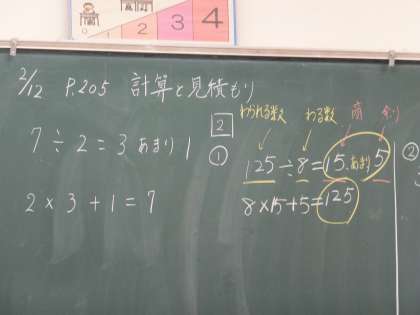 0 1 2 3 4
2/12 P.205 計算と見積もり
7÷2=3あまり1
2×3+1=7
2
①
わられる数 わる数 商 あまり
125÷8=15あまり5
8×15+5=125
②